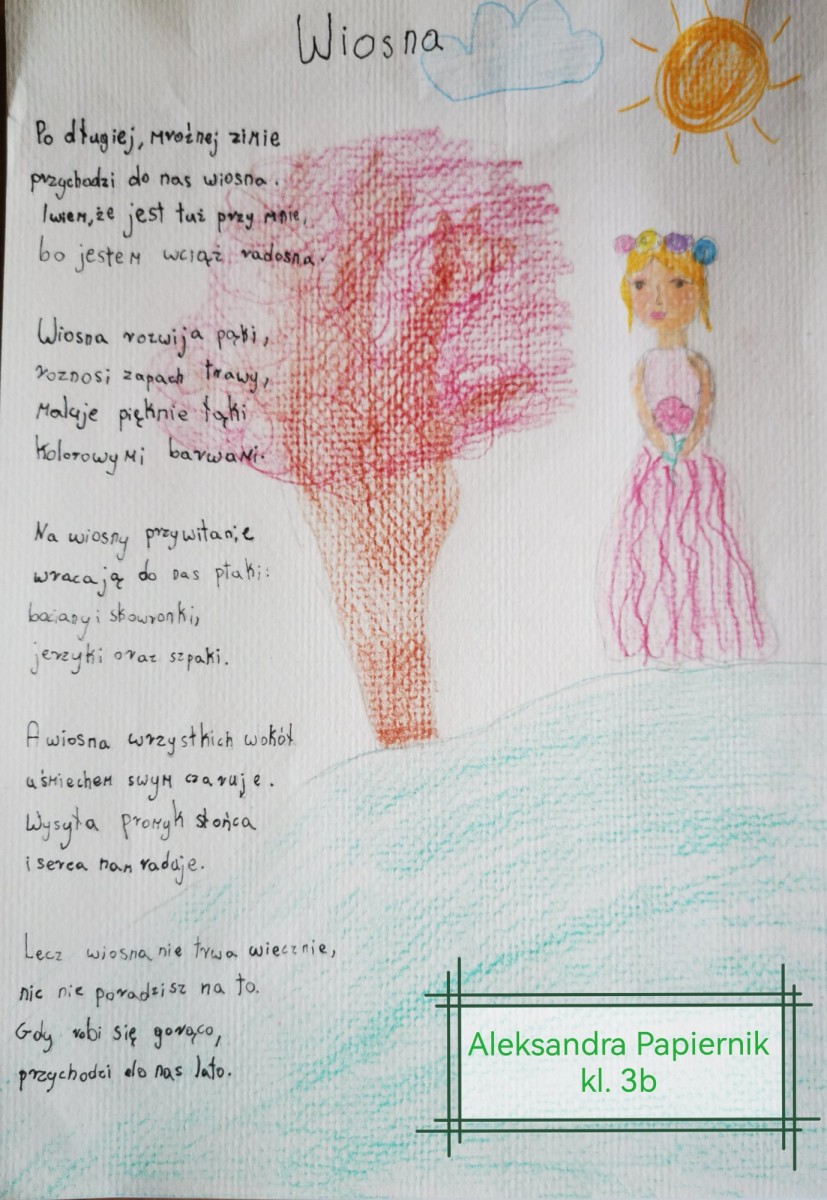 Wiosna
Po długiej, mroźnej zimie
przychodzi do nas wiosna.
I wiem, że jest tuż przy mnie,
bo jestem wciąż radosna.
Wiosna rozwija pąki,
roznosi zapach trawy,
maluje pięknie łąki
kolorowymi barwami.
Na wiosny przywitanie
wracają do nas ptaki:
bociany i skowronki,
jerzyki oraz szpaki.
A wiosna wrzystkich wokół
uśmiechem swym czaruje.
Wysyła promyk słońca
i serca nam raduje.
Lecz wiosna nie trwa wiecznie,
nic nie poradzisz na to.
Gdy robi się gorąco,
przychodzi do nas lato.
Aleksandra Papiernik
kl. 3b